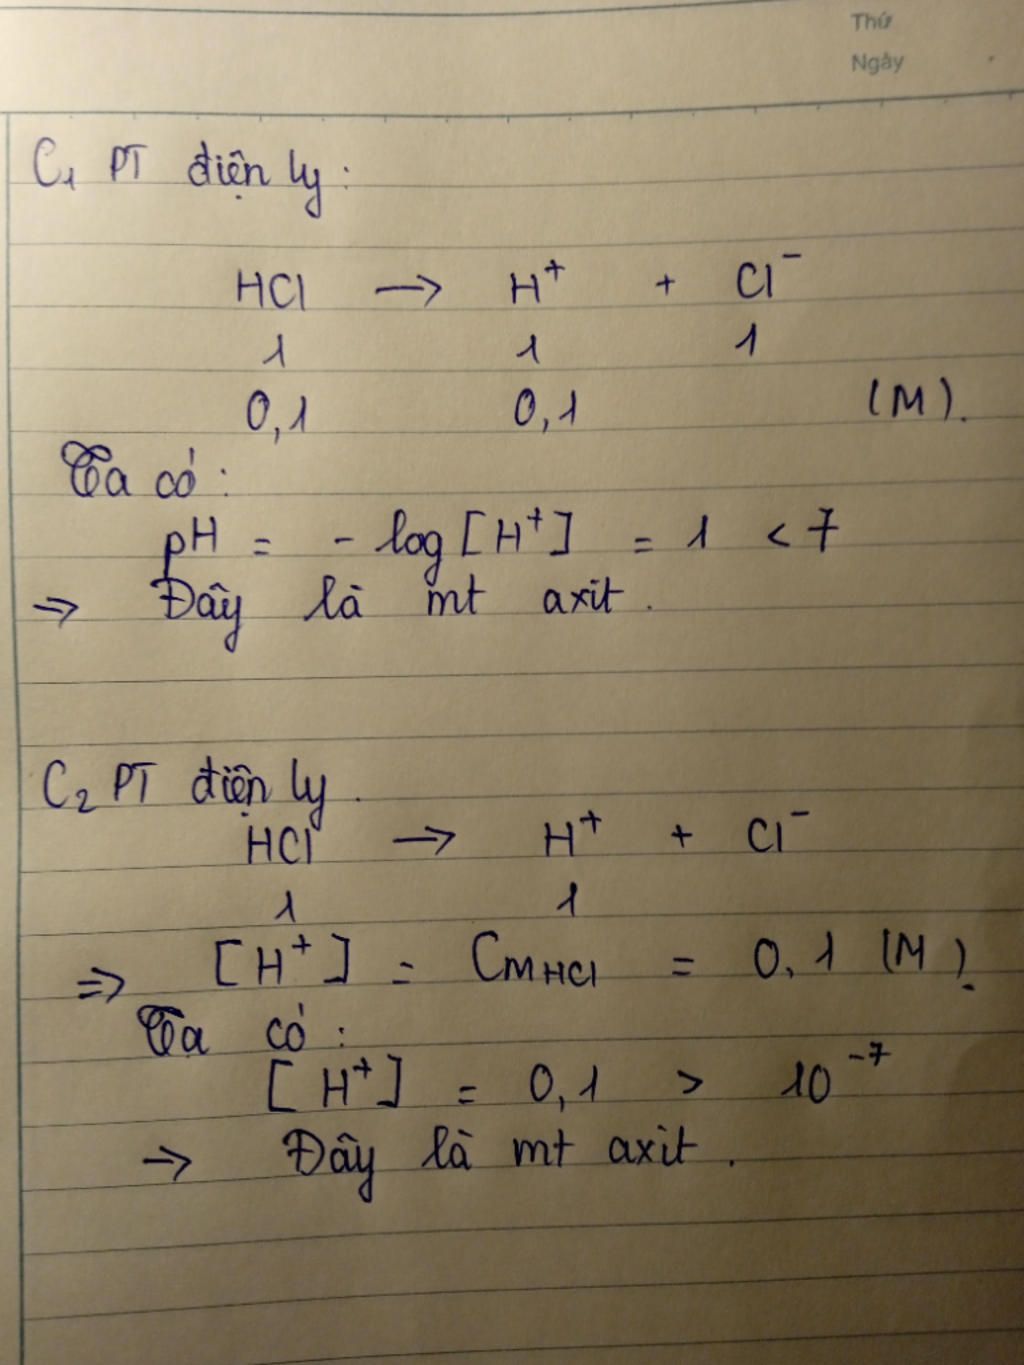 Thứ
Ngày
C₁ PT điện ly:
HCl → H⁺ + Cl⁻
1 1 1
0,1 0,1 (M).
Ta có:
pH = - log [H⁺] = 1 < 7
→ Đây là mt axit.
C₂ PT điện ly.
HCl → H⁺ + Cl⁻
1 1
⇒ [H⁺] = CM HCl = 0,1 (M).
Ta có:
[H⁺] = 0,1 > 10⁻⁷
→ Đây là mt axit.